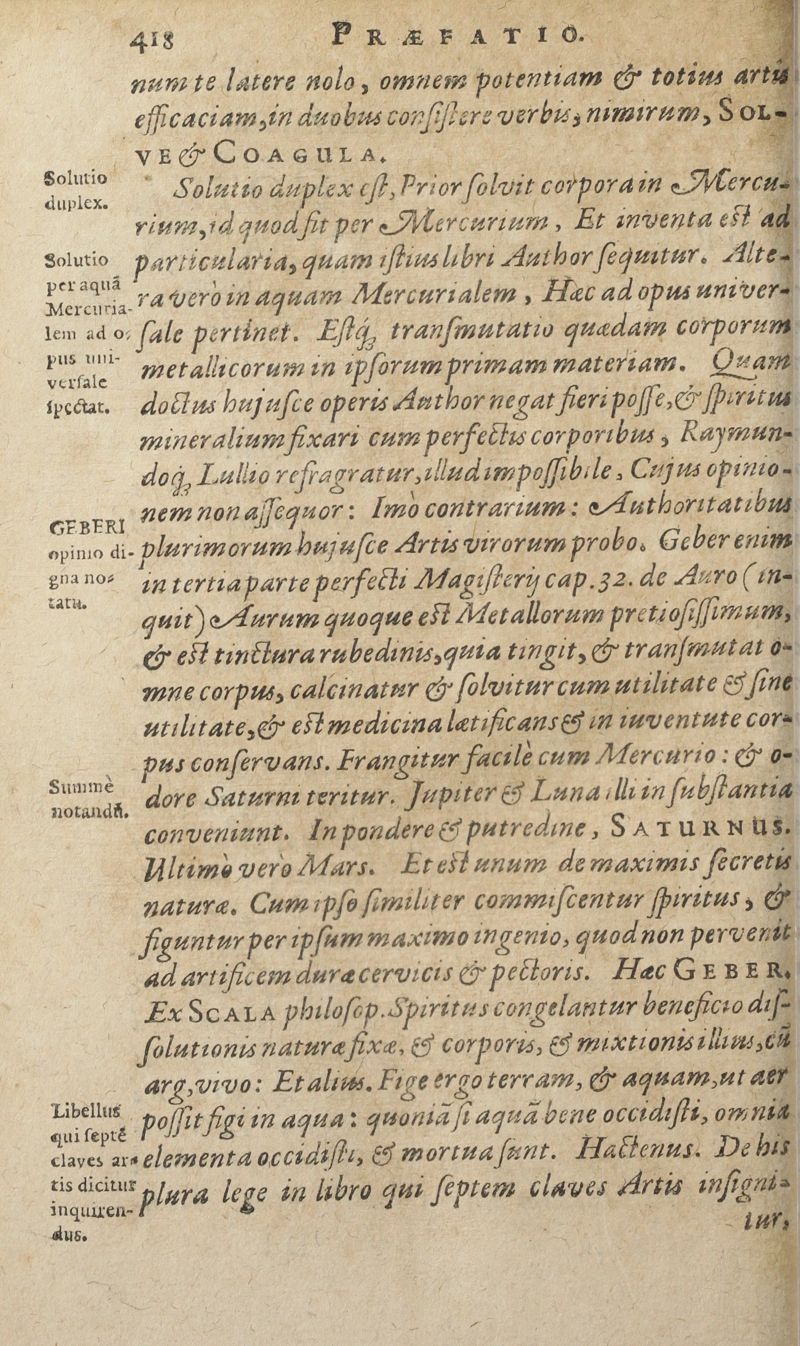 418 PRÆFATIO.
num te latere nolo, omnem potentiam & totius artis
efficaciam, in duobus consistere verbis, nimirum, SOL-
VE & COAGULA.
Solutio duplex est, Prior solvit corpora in Mercu-
rium, id quod fit per Mercurium, Et inventa est ad
particularia, quam istius libri Author sequitur. Alte-
ra vero in aquam Mercurialem, Hæc ad opus univer-
sale pertinet. Estq; transmutatio quædam corporum
metallicorum in ipsorum primam materiam. Quam
doctus hujusce operis Author negat fieri posse, & spiritus
mineralium fixari cum perfectis corporibus, Raymun-
doq; Lullio refragratur, illud impossibile, Cujus opinio-
nem non assequor: Imò contrarium: Authoritatibus
plurimorum hujusce Artis virorum probo. Geber enim
in tertia parte perfecti Magisterij cap. 32. de Auro (in-
quit) Aurum quoque est Metallorum pretiosissimum,
& est tinctura rubedinis, quia tingit, & transmutat o-
mne corpus, calcinatur & solvitur cum utilitate & sine
utilitate, & est medicina lætificans & in iuventute cor-
pus conservans. Frangitur facilè cum Mercurio: & o-
dore Saturni teritur. Jupiter & Luna illi in substantia
conveniunt. In pondere & putredine, SATURNUS.
Ultimo vero Mars. Et est unum de maximis secretis
naturæ. Cum ipso similiter commiscentur spiritus, &
figuntur per ipsum maximo ingenio, quod non pervenit
ad artificem duræ cervicis & pectoris. Hæc GEBER.
Ex SCALA philosop. Spiritus congelantur beneficio dis-
solutionis naturæ fixæ, & corporis, & mixtionis illius, cū
arg, vivo: Et alius. Fige ergo terram, & aquam, ut aer
possit figi in aqua: quoniā si aquā bene occidisti, omnia
elementa occidisti, & mortua sunt. Hactenus. De his
plura lege in libro qui septem claves Artis insigni-
tur,
Solutio
duplex.
Solutio
per aquā
Mercuria-
lem ad o-
pus uni-
versale
spectat.
GEBERI
opinio di-
gna no-
tatu.
Summè
notandū.
Libellus
qui septē
claves ar-
tis dicitur
inquiren-
dus.